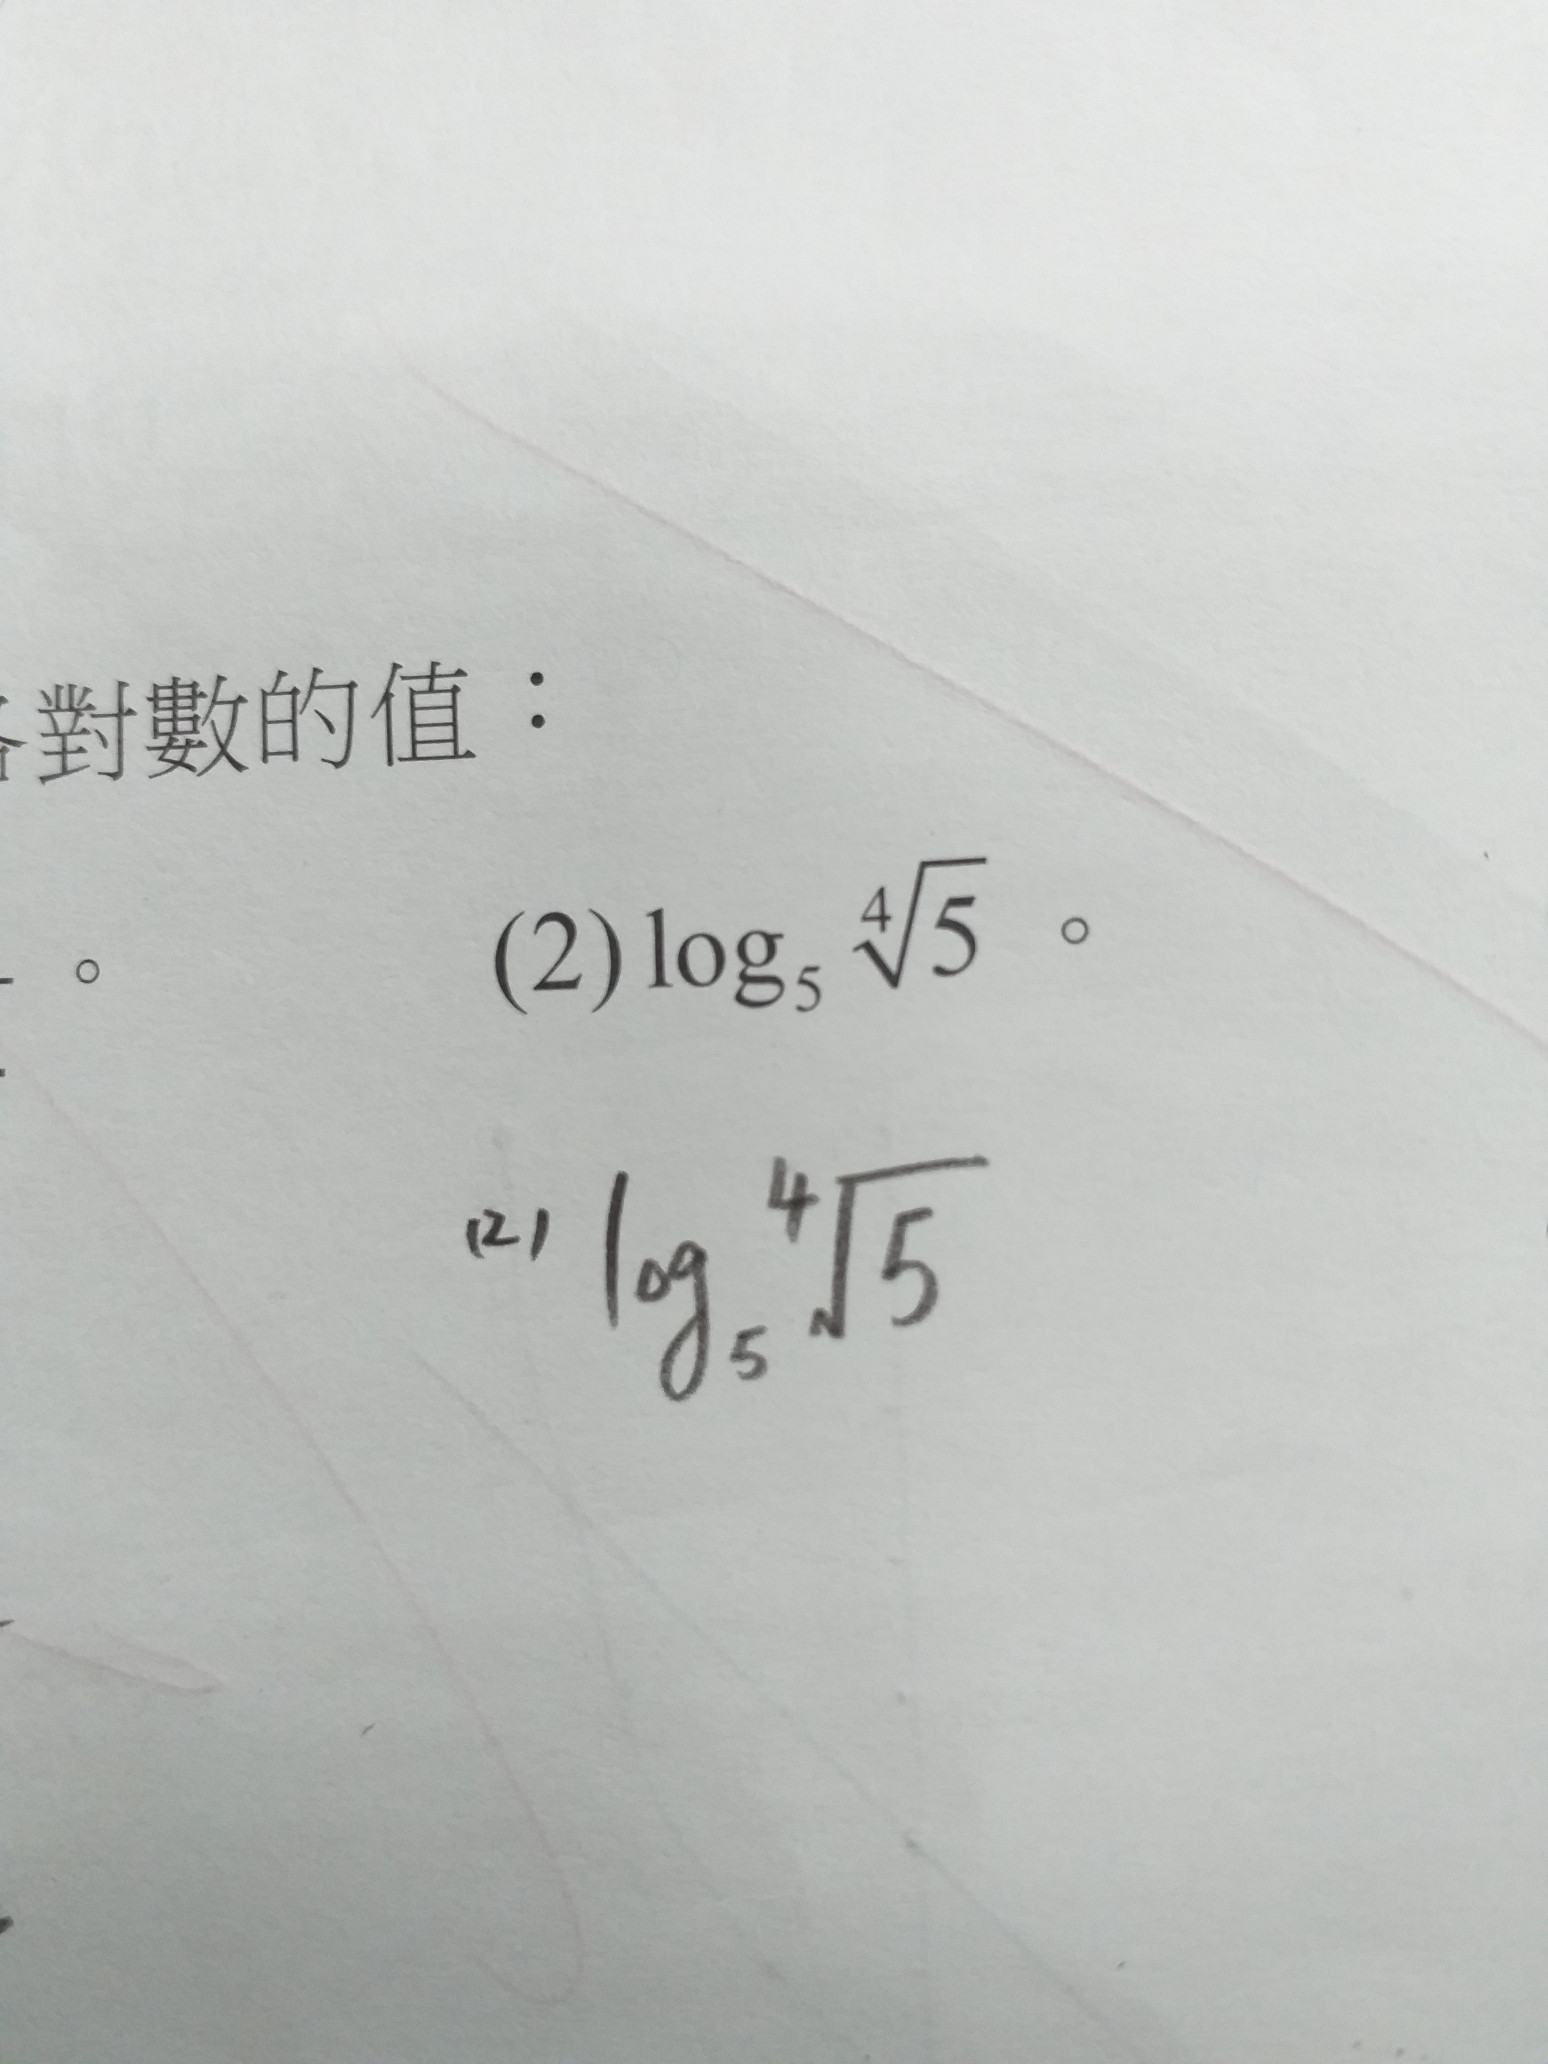 對數的值：
。 (2) log₅ ⁴√5 。
(2) log₅ ⁴√5